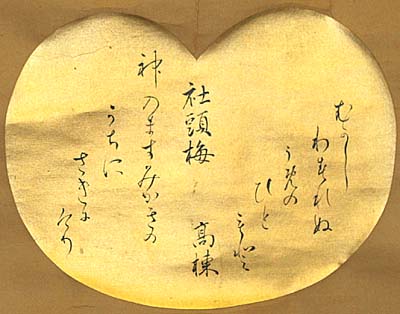 社頭梅
高棟
神のますみかきの
うちに
さきに
けり
むかし
わすれぬ
うめの
ひと
もと